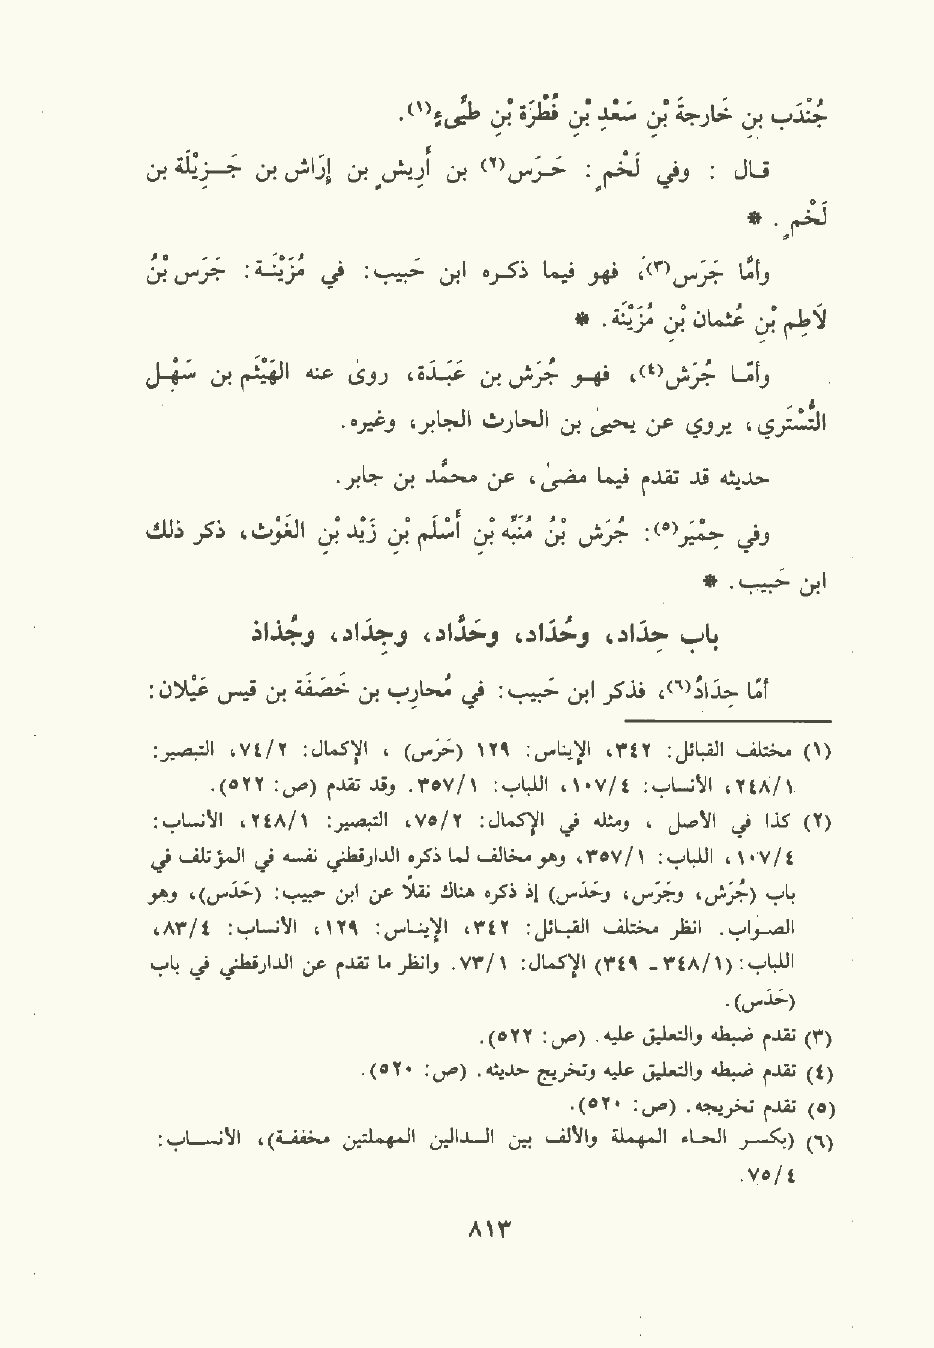 جُنْدَب بنِ خَارجةَ بنِ سَعْدِ بْنِ فُطْرَةَ بْنِ طَيِّىءٍ(١).
قـال : وفي لَخْمٍ : حَـرَس(٢) بن أَرِيشٍ بن إرَاش بن جَـزِيْلَة بن
لَخْمٍ . *
وأمَّا جَرَس(٣)، فهو فيما ذكـره ابن حَبيب: في مُزَيْنَـة: جَرَس بْنُ
لَاطِم بْنِ عُثمان بْنِ مُزَيْنَة. *
وأمَّـا جُرَش(٤)، فـهو جُرَش بن عَبَـدَة، روىٰ عنه الهَيْثَم بن سَهْـل
التُّسْتَري، يروي عن يحيىٰ بن الحارث الجابر، وغيره.
حديثه قد تقدم فيما مضىٰ، عن محمَّد بن جابر.
وفي حِمْيَر(٥): جُرَش بْنُ مُنَبِّه بْنِ أَسْلَم بْنِ زَيْدِ بْنِ الغَوْث، ذكر ذلك
ابن حَبيب. *
باب حِدَاد، وحُدَاد، وحَدَّاد، وجِدَاد، وجُذاذ
أمَّا حِدَادٌ(٦)، فذكر ابن حَبيب: في مُحارِب بن خَصَفَة بن قيس عَيْلان:
(١) مختلف القبائل: ٣٤٢، الإيناس: ١٢٩ (حَرَس) ، الإكمال: ٧٤/٢، التبصير:
٢٤٨/١، الأنسـاب: ١٠٧/٤، اللباب: ٣٥٧/١. وقد تقدم (ص: ٥٢٢).
(٢) كذا في الأصل ، ومثله في الإكمال: ٧٥/٢، التبصير: ٢٤٨/١، الأنساب:
١٠٧/٤، اللباب: ٣٥٧/١، وهو مخالف لما ذكره الدارقطني نفسه في المؤتلف في
باب (جُرَش، وجَرَس، وحَدَس) إذ ذكره هناك نقلاً عن ابن حبيب: (حَدَس)، وهو
الصـواب. انظر مختلف القبـائل: ٣٤٢، الإينـاس: ١٢٩، الأنسـاب: ٨٣/٤،
اللباب: (٣٤٨/١ - ٣٤٩) الإكمال: ٧٣/١. وانظر ما تقدم عن الدارقطني في باب
(حَدَس).
(٣) تقدم ضبطه والتعليق عليه. (ص: ٥٢٢).
(٤) تقدم ضبطه والتعليق عليه وتخريج حديثه. (ص: ٥٢٠).
(٥) تقدم تخريجه. (ص: ٥٢٠).
(٦) (بكسـر الحـاء المهملة والألف بين الـدالين المهملتين مخففـة)، الأنسـاب:
٧٥/٤.
٨١٣